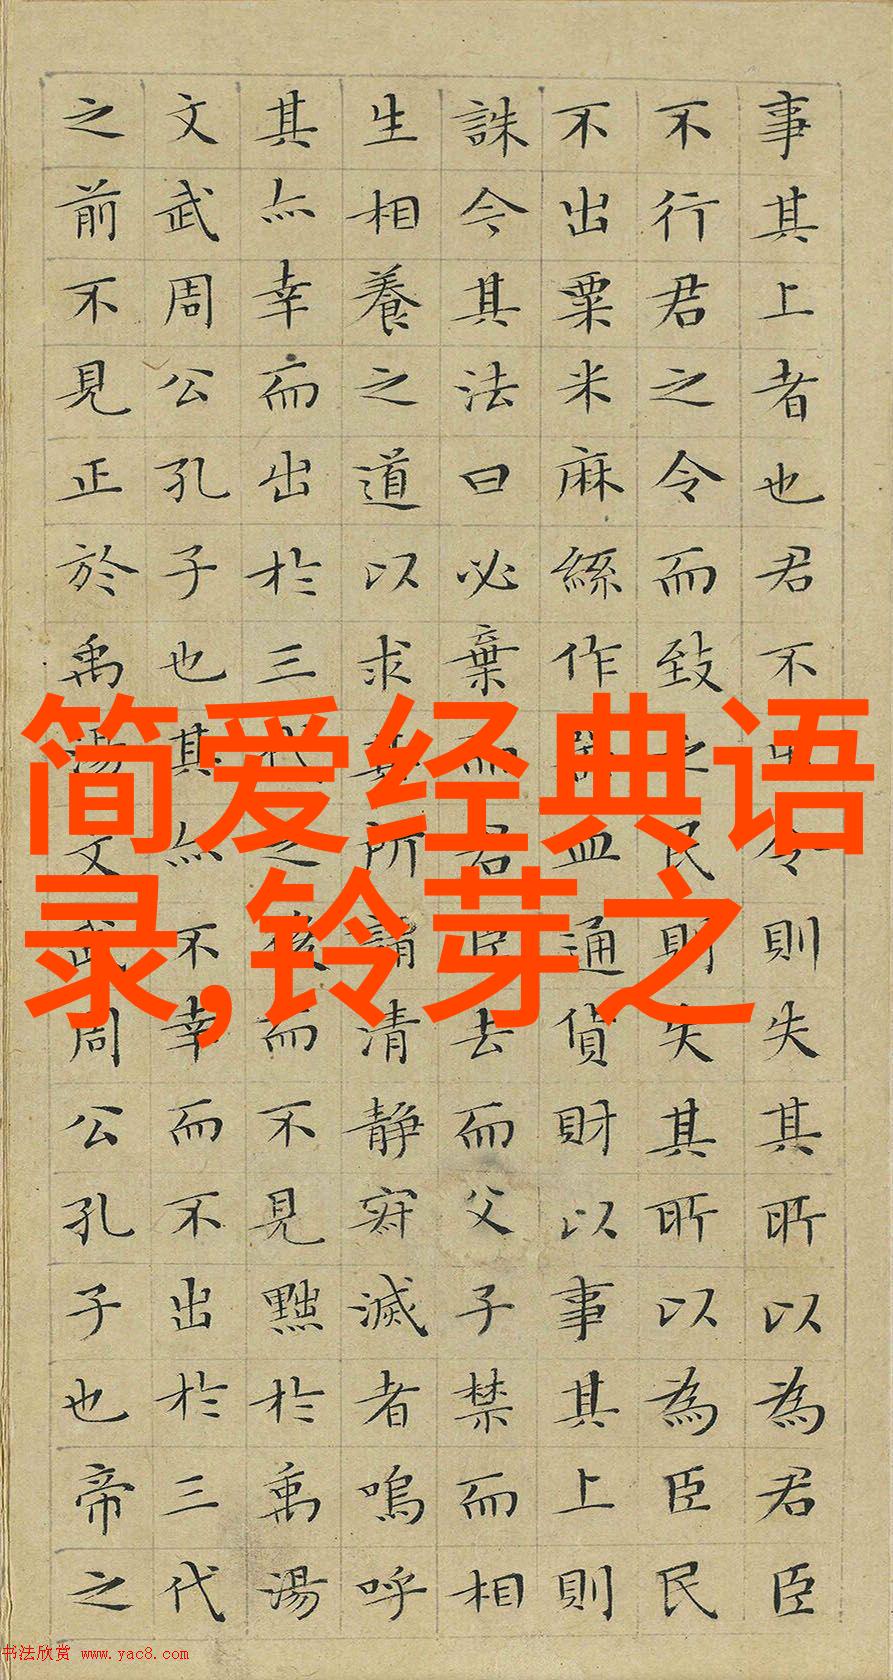 事其上者也君不出令則失其所以為君臣
不行君之令而致之民則失其所以為臣民
不出粟米麻絲作器皿通貨財以事其上則
誅今其法曰必棄而君臣去而父子禁而相
生相養之道以求其所謂清静寂滅者嗚呼
其亦幸而出於三代之後而不見黜於禹湯
文武周公孔子也其亦不幸而不出於三代
之前不見正於禹湯文武周公孔子也帝之
简爱经典语
录,铃芽之
书法欣赏 www.yac8.com